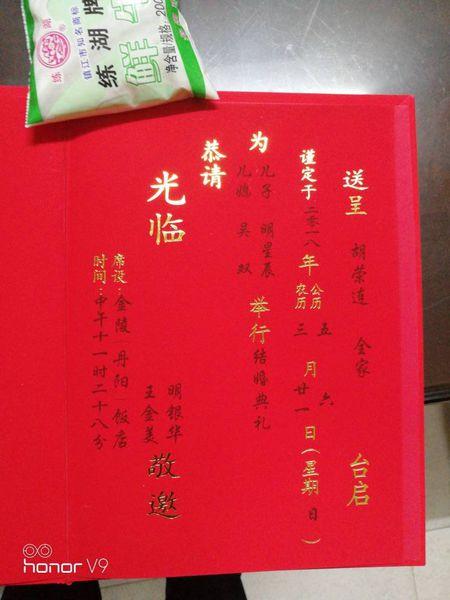 练湖
镇江市知名商标
练湖牌
鲜牛
净含量/规格:200
送呈 胡荣连 全家 台启
谨定于二零一八年 公历 五月六日(星期日)
农历 三 廿一
为 儿子 明星辰 举行结婚典礼
儿媳 吴双
恭请
光临
明银华
王金美 敬邀
席设:金陵(丹阳)饭店
时间:中午十一时二十八分
honor V9